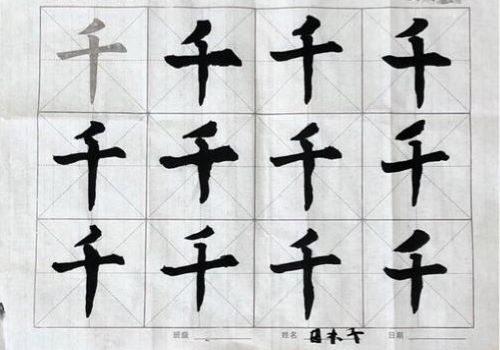 千 千 千 千
千 千 千 千
千 千 千 千
班级 姓名 日期